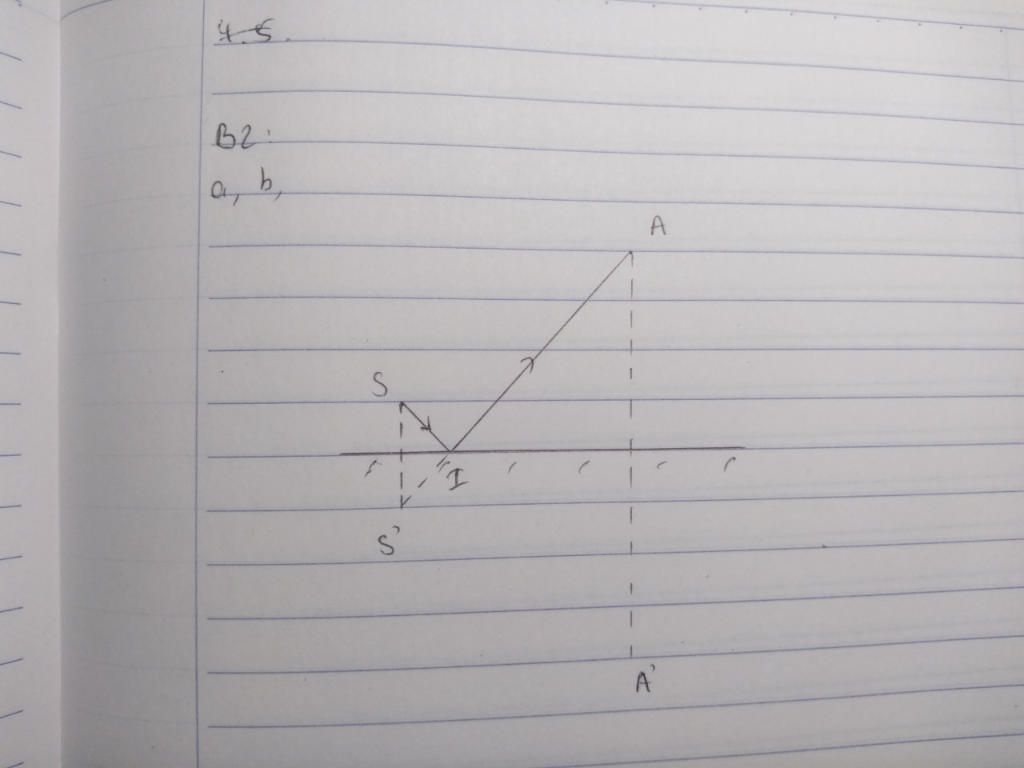 4.5.
B2:
a, b,
A
S
I
S'
A'